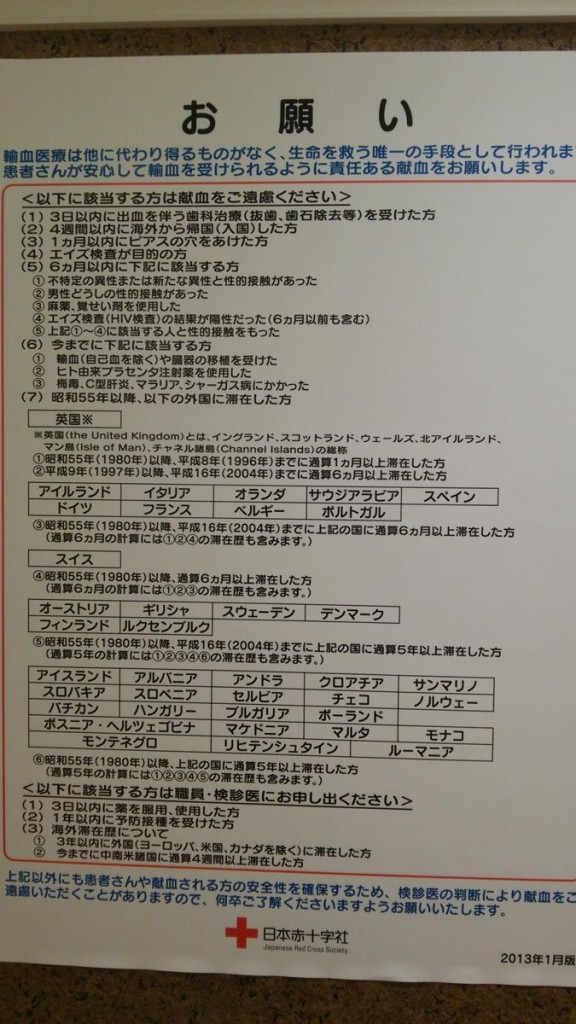 お願い
輸血医療は他に代わり得るものがなく、生命を救う唯一の手段として行われま
患者さんが安心して輸血を受けられるように責任ある献血をお願いします。
＜以下に該当する方は献血をご遠慮ください＞
(1) 3日以内に出血を伴う歯科治療(抜歯、歯石除去等)を受けた方
(2) 4週間以内に海外から帰国(入国)した方
(3) 1ヵ月以内にピアスの穴をあけた方
(4) エイズ検査が目的の方
(5) 6ヵ月以内に下記に該当する方
① 不特定の異性または新たな異性と性的接触があった
② 男性どうしの性的接触があった
③ 麻薬、覚せい剤を使用した
④ エイズ検査(HIV検査)の結果が陽性だった(6ヵ月以前も含む)
⑤ 上記①〜④に該当する人と性的接触をもった
(6) 今までに下記に該当する方
① 輸血(自己血を除く)や臓器の移植を受けた
② ヒト由来プラセンタ注射薬を使用した
③ 梅毒、C型肝炎、マラリア、シャーガス病にかかった
(7) 昭和55年以降、以下の外国に滞在した方
英国※
※英国(the United Kingdom)とは、イングランド、スコットランド、ウェールズ、北アイルランド、
マン島(Isle of Man)、チャネル諸島(Channel Islands)の総称
①昭和55年(1980)以降、平成8年(1996)までに通算1ヵ月以上滞在した方
②平成9年(1997)以降、平成16年(2004)までに通算6ヵ月以上滞在した方
アイルランド イタリア オランダ サウジアラビア スペイン
ドイツ フランス ベルギー ポルトガル
③昭和55年(1980)以降、平成16年(2004)までに上記の国に通算6ヵ月以上滞在した方
(通算6ヵ月の計算には①②④の滞在歴も含みます。)
スイス
④昭和55年(1980)以降、通算6ヵ月以上滞在した方
(通算6ヵ月の計算には①②③の滞在歴も含みます。)
オーストリア ギリシャ スウェーデン デンマーク
フィンランド ルクセンブルク
⑤昭和55年(1980)以降、平成16年(2004)までに上記の国に通算5年以上滞在した方
(通算5年の計算には①②③④⑥の滞在歴も含みます。)
アイスランド アルバニア アンドラ クロアチア サンマリノ
スロバキア スロベニア セルビア チェコ ノルウェー
バチカン ハンガリー ブルガリア ポーランド
ボスニア・ヘルツェゴビナ マケドニア マルタ モナコ
モンテネグロ リヒテンシュタイン ルーマニア
⑥昭和55年(1980)以降、上記の国に通算5年以上滞在した方
(通算5年の計算には①②③④⑤の滞在歴も含みます。)
＜以下に該当する方は職員・検診医にお申し出ください＞
(1) 3日以内に薬を服用、使用した方
(2) 1年以内に予防接種を受けた方
(3) 海外滞在歴について
① 3年以内に外国(ヨーロッパ、米国、カナダを除く)に滞在した方
② 今までに中南米諸国に通算4週間以上滞在した方
上記以外にも患者さんや献血される方の安全性を確保するため、検診医の判断により献血をご
遠慮いただくことがありますので、何卒ご了解くださいますようお願いいたします。
日本赤十字社
Japanese Red Cross Society
2013年1月版